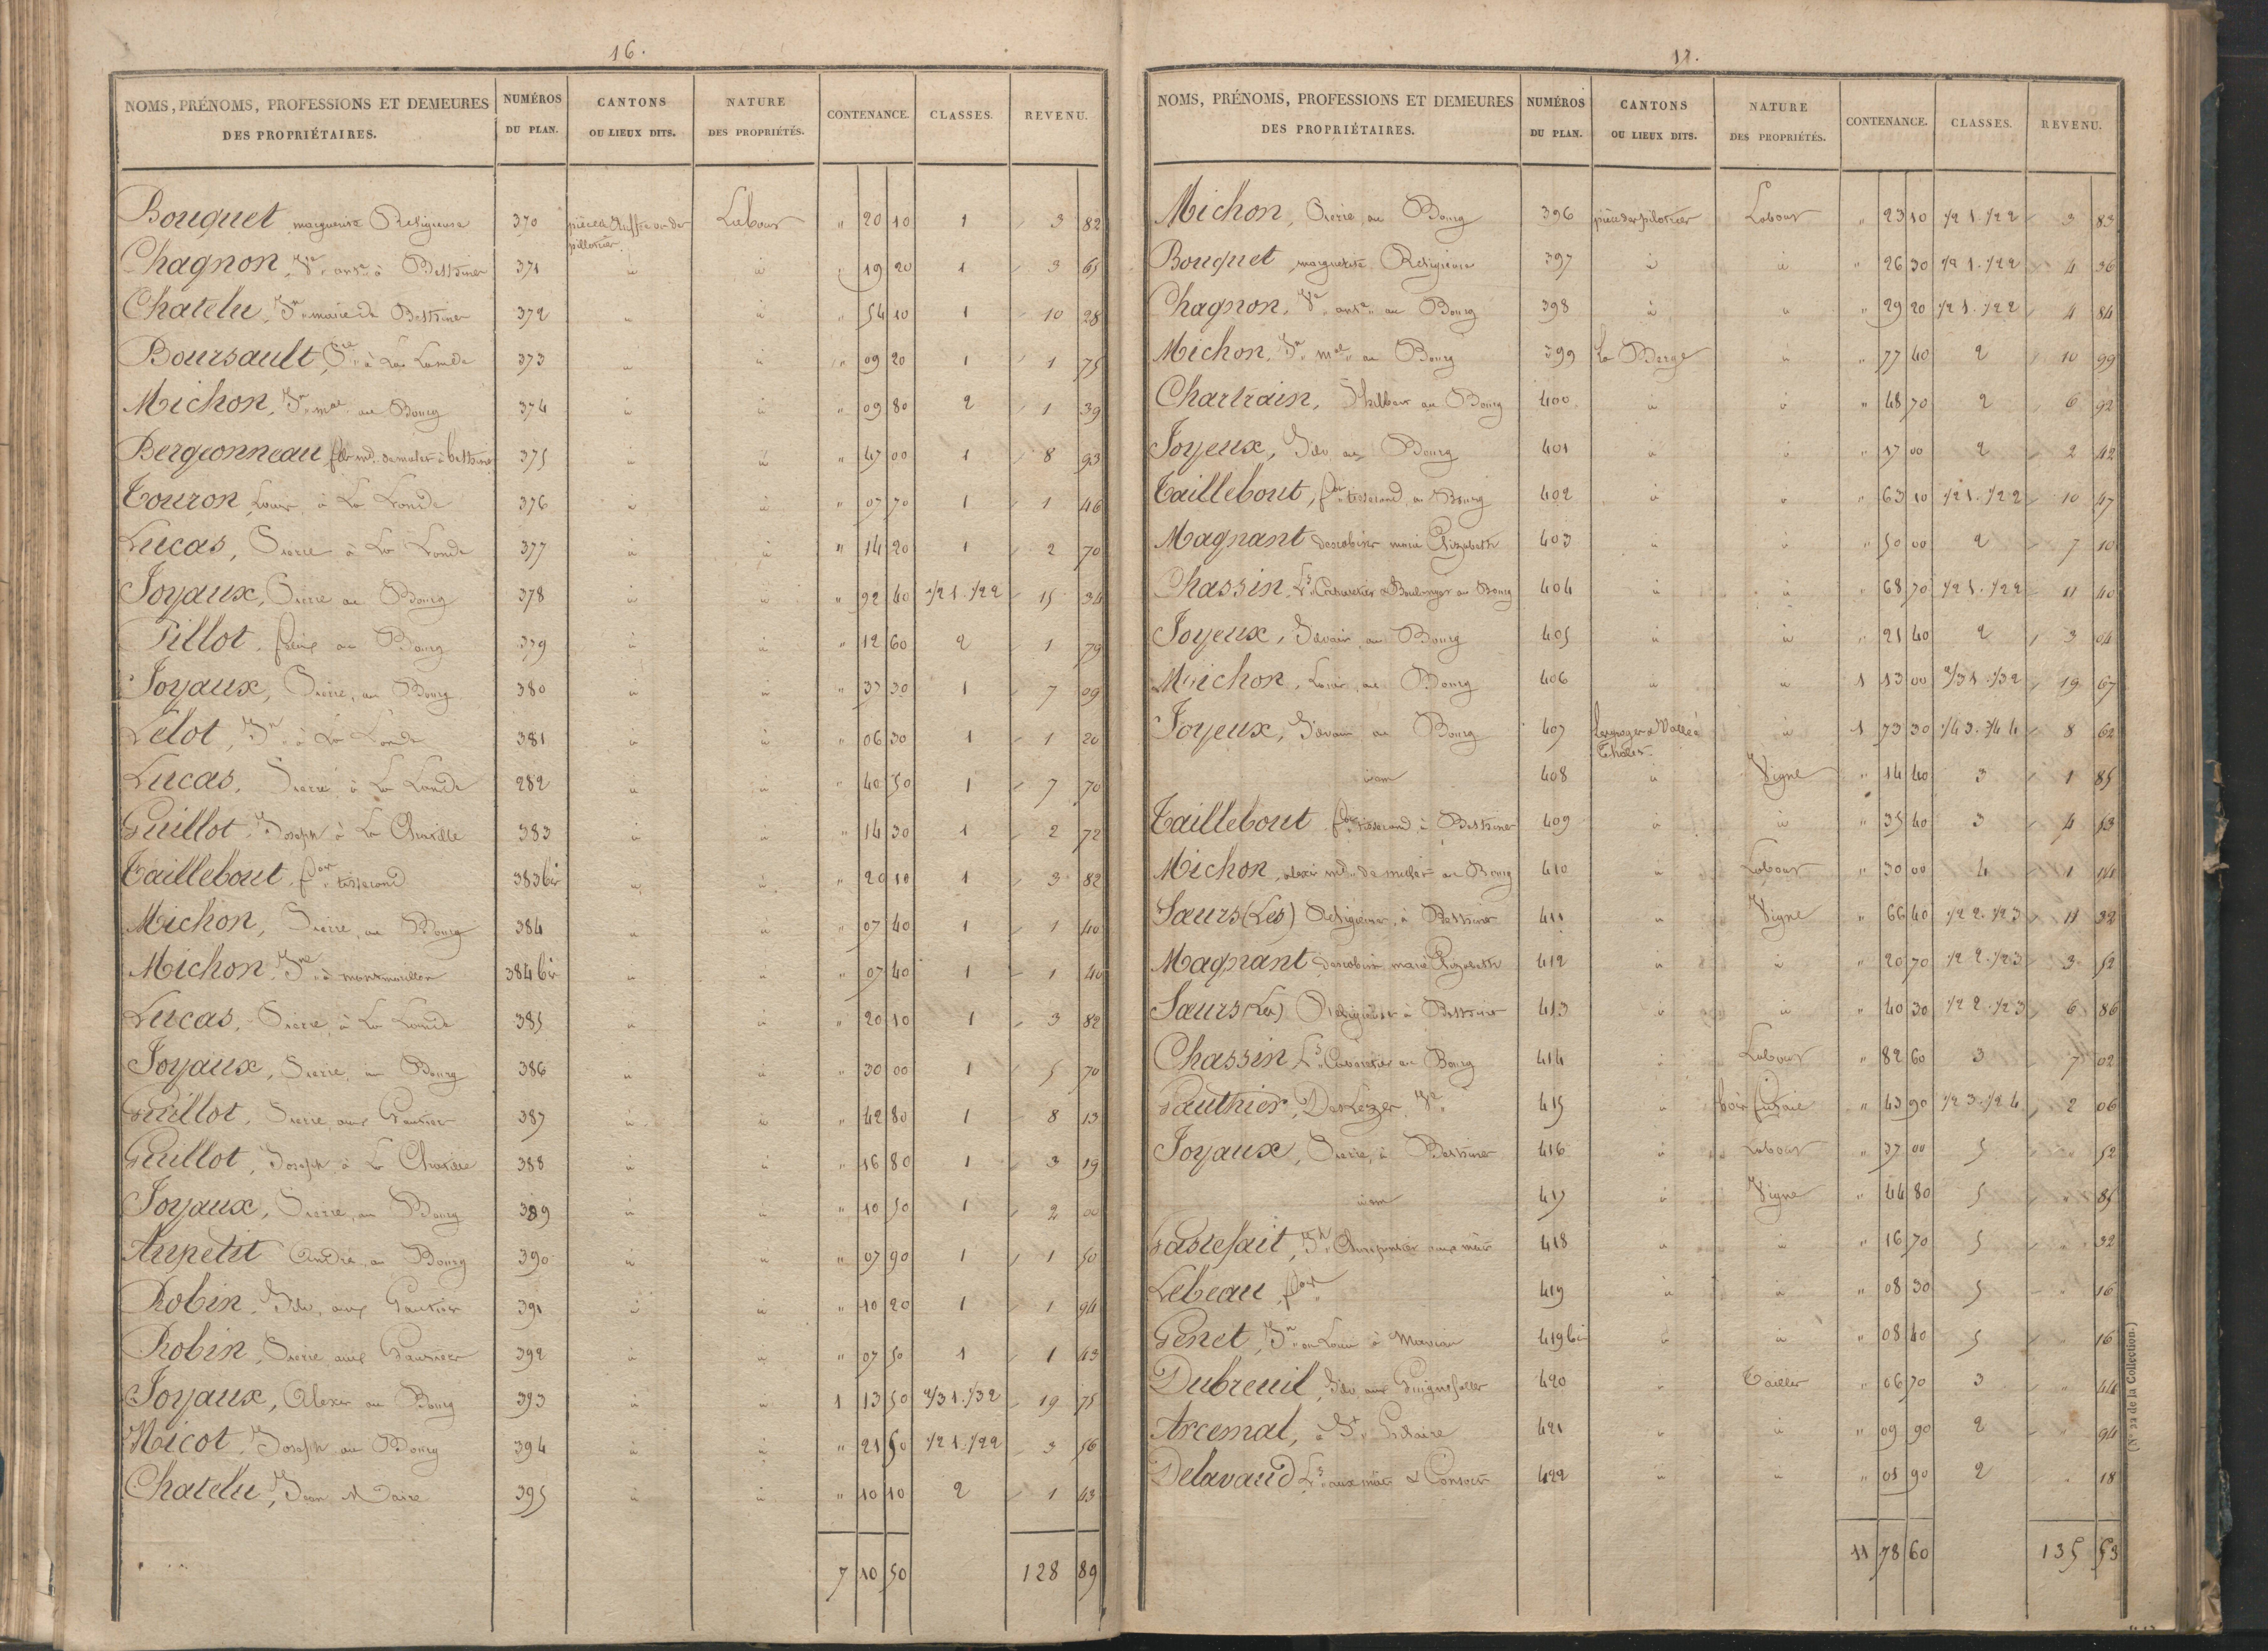 16.
NOMS, PRÉNOMS, PROFESSIONS ET DEMEURES DES PROPRIÉTAIRES. NUMÉROS DU PLAN. CANTONS OU LIEUX DITS. NATURE DES PROPRIÉTÉS. CONTENANCE. CLASSES. REVENU.
Bouquet, marguerite Religieuse 370 pièce des pillotier Labour " 20 10 1 3 82
Chagnon, Ve à Bessines 371 id id " 19 20 1 3 65
Chatelu, Jn marie de Bessines 372 id id " 54 10 1 10 28
Boursault, à La Lande 373 id id " 09 20 1 1 75
Michon, Jn au Bourg 374 id id " 09 80 2 1 39
Bergeonneau md de mules à bessines 375 id id " 47 00 1 8 93
Touron, Louis, à La Lande 376 id id " 07 70 1 1 46
Lucas, Pierre à La Lande 377 id id " 14 20 1 2 70
Joyaux, Pierre au Bourg 378 id id " 92 40 1/2 1. 1/2 2 15 34
Pillot, au Bourg 379 id id " 12 60 2 1 79
Joyaux, Pierre, au Bourg 380 id id " 37 30 1 7 09
Lelot, Jn à La Lande 381 id id " 06 30 1 1 20
Lucas, Pierre à La Lande 282 id id " 40 50 1 7 70
Guillot, Joseph à La 383 id id " 14 30 1 2 72
Taillebout, tisserand 383 bis id id " 20 10 1 3 82
Michon, Pierre, au Bourg 384 id id " 07 40 1 1 40
Michon, à montmorillon 384 bis id id " 07 40 1 1 40
Lucas, Pierre, à La Lande 385 id id " 20 10 1 3 82
Joyaux, Pierre, au Bourg 386 id id " 30 00 1 5 70
Guillot, Pierre, aux Gautier 387 id id " 42 80 1 8 13
Guillot, Joseph à La 388 id id " 16 80 1 3 19
Joyaux, Pierre, au Bourg 389 id id " 10 50 1 2 00
Aupetit André, au Bourg 390 id id " 07 90 1 1 50
Robin, Silv, aux Gautier 391 id id " 10 20 1 1 94
Robin, Pierre, aux Gautier 392 id id " 07 50 1 1 43
Joyaux, Alexis au Bourg 393 id id 1 13 50 2/3 1. 1/3 2 19 75
Nicot, Joseph au Bourg 394 id id " 21 50 1/2 1. 1/2 2 3 56
Chatelu, Jean Marie 395 id id " 10 10 2 1 43
7 10 50 128 89
17.
NOMS, PRÉNOMS, PROFESSIONS ET DEMEURES DES PROPRIÉTAIRES. NUMÉROS DU PLAN. CANTONS OU LIEUX DITS. NATURE DES PROPRIÉTÉS. CONTENANCE. CLASSES. REVENU.
Michon, Pierre, au Bourg 396 pièce des pilotier Labour " 23 10 1/2 1. 1/2 2 3 83
Bouquet, marguerite, Religieuse 397 id id " 26 30 1/2 1. 1/2 2 4 36
Chagnon, Ve au Bourg 398 id id " 29 20 1/2 1. 1/2 2 4 84
Michon, Jn au Bourg 399 La Berge id " 77 40 2 10 99
Chartrain, Philbert au Bourg 400 id id " 48 70 2 6 92
Joyeux, Silv au Bourg 401 id id " 17 00 2 2 42
Taillebout, tisserand, au Bourg 402 id id " 63 10 1/2 1. 1/2 2 10 47
Magnant descobin marie Elizabeth 403 id id " 50 00 2 7 10
Chassin, Ls Cabaretier & Boulanger au Bourg 404 id id " 68 70 1/2 1. 1/2 2 11 40
Joyeux, Silvain au Bourg 405 id id " 21 40 2 3 04
Michon, Louis, au Bourg 406 id id 1 13 00 2/3 1. 1/3 2 19 67
Joyeux, Silvain au Bourg 407 id 1 73 30 1/4 3. 3/4 4 8 62
idem 408 id Vigne " 14 40 3 1 85
Taillebout tisserand à Bessines 409 id id " 35 40 3 4 53
Michon, alexis md de mules au Bourg 410 id Labour " 30 00 4 1 14
Sœurs (Les) Religieuses, à Bessines 411 id Vigne " 66 40 1/2 2. 1/2 3 11 32
Magnant descobin marie Elizabeth 412 id id " 20 70 1/2 2. 1/2 3 3 52
Sœurs (Les) Religieuses à Bessines 413 id id " 40 30 1/2 2. 1/2 3 6 86
Chassin, Ls Cabaretier au Bourg 414 id Labour " 82 60 3 7 02
Gauthier, Ve 415 id bois futaie " 43 90 1/2 3. 1/2 4 2 06
Joyaux, Pierre, à Bessines 416 id Labour " 37 00 5 " 52
idem 417 id Vigne " 44 80 5 " 85
Charpentier aux 418 id id " 16 70 5 " 32
Lebeau 419 id id " 08 30 5 " 16
Genet, Jn ou Louis à 419 bis id id " 08 40 5 " 16
Dubreuil, Silv aux 420 id Tailler " 06 70 3 " 44
Arcemal, à St hilaire 421 id id " 09 90 2 " 94
Delavaud Ls & Consorts 422 id id " 01 90 2 " 18
11 78 60 135 53
(N° 22 de la Collection.)